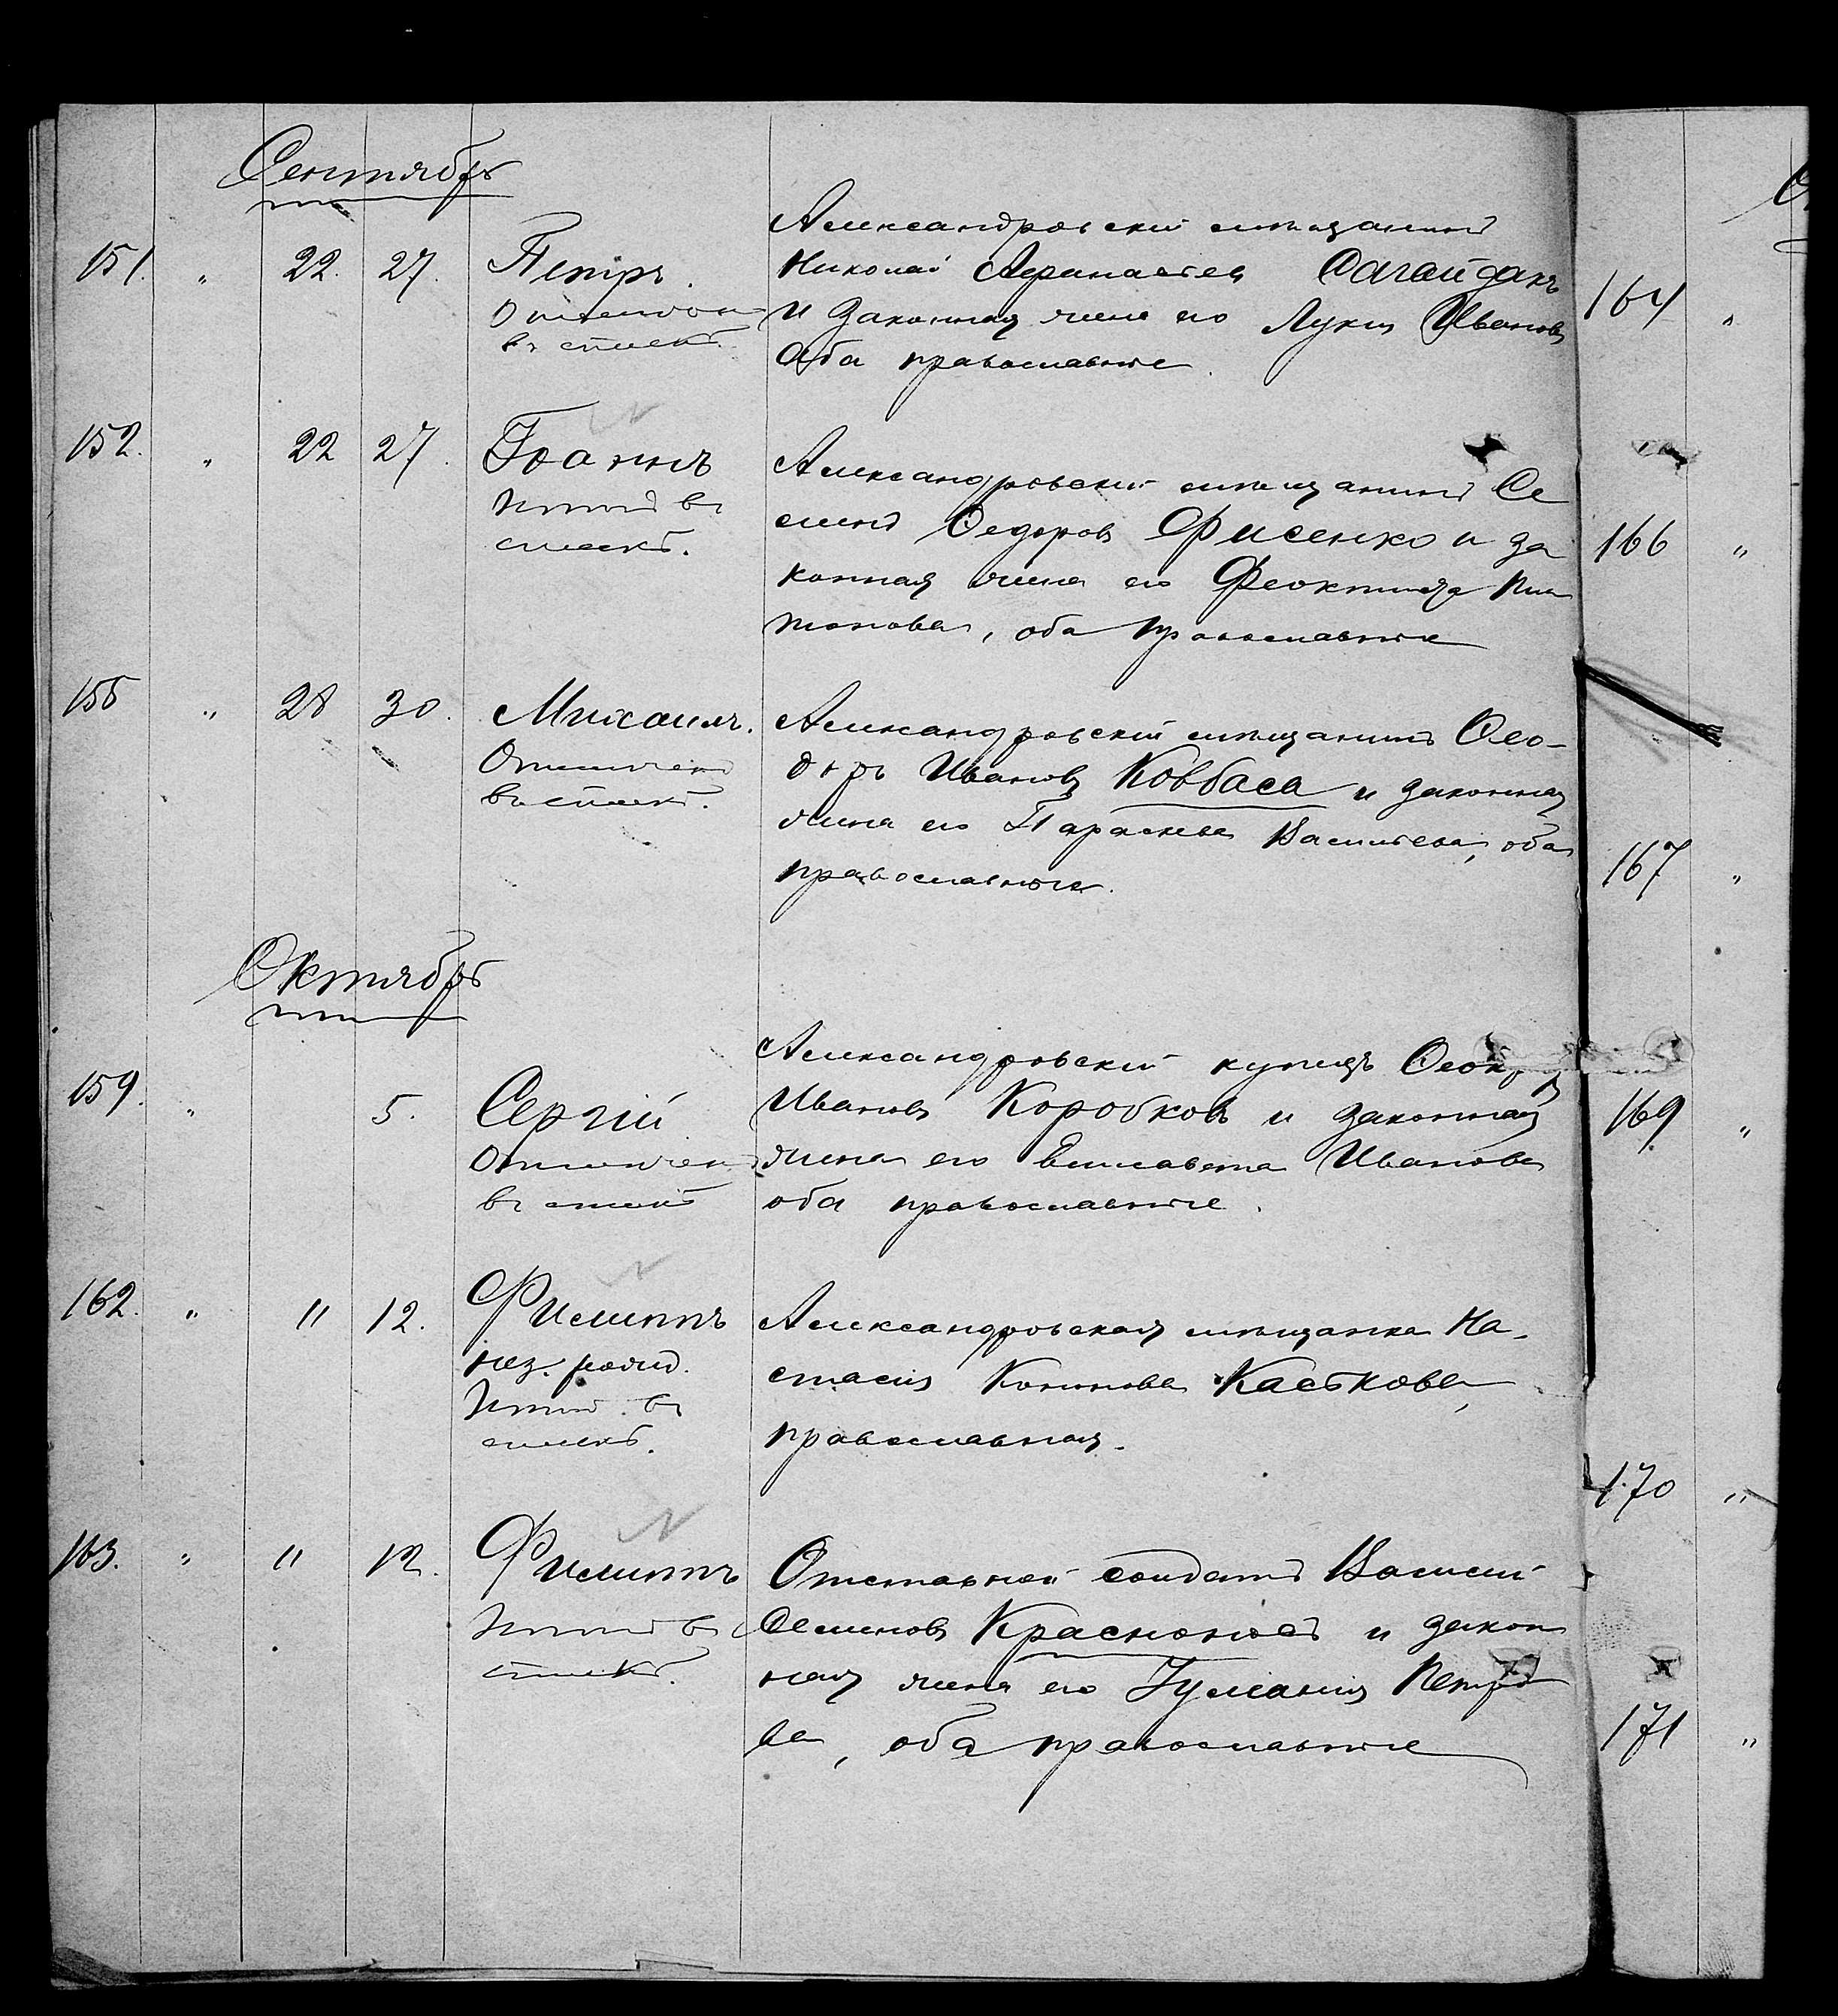 Сентябрь
151. " 22. 27. Петръ.
Отмечен
въ списк.
Александровскій мѣщанинъ
Николай Афанасіев Сагайдакъ
и законная жена его Лукія Иванова
оба православные.
152. " 22 27. Іоаннъ
въ
списк.
Александровскій мѣщанинъ Се
менъ Ѳедоровъ Фисенко и за
конная жена его Феоктиста Пла
тонова, оба православные
155 " 28 30. Михаилъ.
Отмечен
въ списк.
Александровскій мѣщанинъ Ѳео-
доръ Ивановъ Ковбаса и законная
жена его Параскева Васильева, оба
православные.
Октябрь
159. " 5. Сергій
Отмечен
въ списк
Александровскій купецъ
Ивановъ Коробковъ и законная
жена его Елисавета Иванова
оба православные.
162. " 11 12. Филиппъ
нез. рожд.
въ
списк.
Александровская мѣщанка На-
стасія Кононова Каськова,
православная.
163. " 11 12. Филиппъ
въ
списк.
Отставной солдатъ Василій
Семеновъ Красноносъ и закон
ная жена его Іуліанія Петро
ва, оба православные
164 "
166 "
167 "
169 "
170 "
171 "